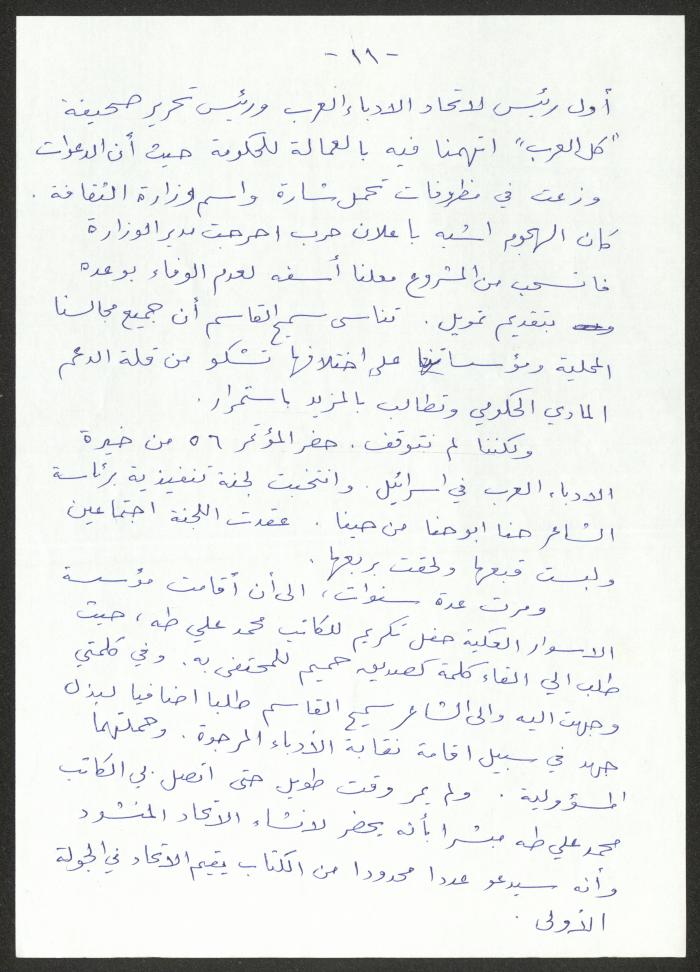 - ١٩ -
أول رئيس لاتحاد الادباء العرب ورئيس تحرير صحيفة
"كل العرب" اتهمنا فيه بالعمالة للحكومة حيث أن الدعوات
وزعت في مظروفات تحمل شارة واسم وزارة الثقافة .
كان الهجوم اشبه باعلان حرب احرجت مدير الوزارة
فانسحب من المشروع معلنا أسفه لعدم الوفاء بوعده
بتقديم تمويل . تناسى سميح القاسم أن جميع مجالسنا
المحلية ومؤسساتنا على اختلافها تشكو من قلة الدعم
المادي الحكومي وتطالب بالمزيد باستمرار .
ولكننا لم نتوقف . حضر المؤتمر ٥٦ من خيرة
الادباء العرب في اسرائيل . وانتخبت لجنة تنفيذية برئاسة
الشاعر حنا ابو حنا من حيفا . عقدت اللجنة اجتماعين
ولبست قبعها ولحقت بربعها .
ومرت عدة سنوات ، الى أن أقامت مؤسسة
الاسوار العكية حفل تكريم للكاتب محمد علي طه ، حيث
طلب الي القاء كلمة كصديق حميم للمحتفى به . وفي كلمتي
وجهت اليه والى الشاعر سميح القاسم طلبا اضافيا لبذل
جهد في سبيل اقامة نقابة الأدباء المرجوة . وحملتهما
المسؤولية . ولم يمر وقت طويل حتى اتصل بي الكاتب
محمد علي طه مبشرا بأنه يحضر لانشاء الاتحاد المنشود
وأنه سيدعو عددا محدودا من الكتاب يقيم الاتحاد في الجولة
الأولى .